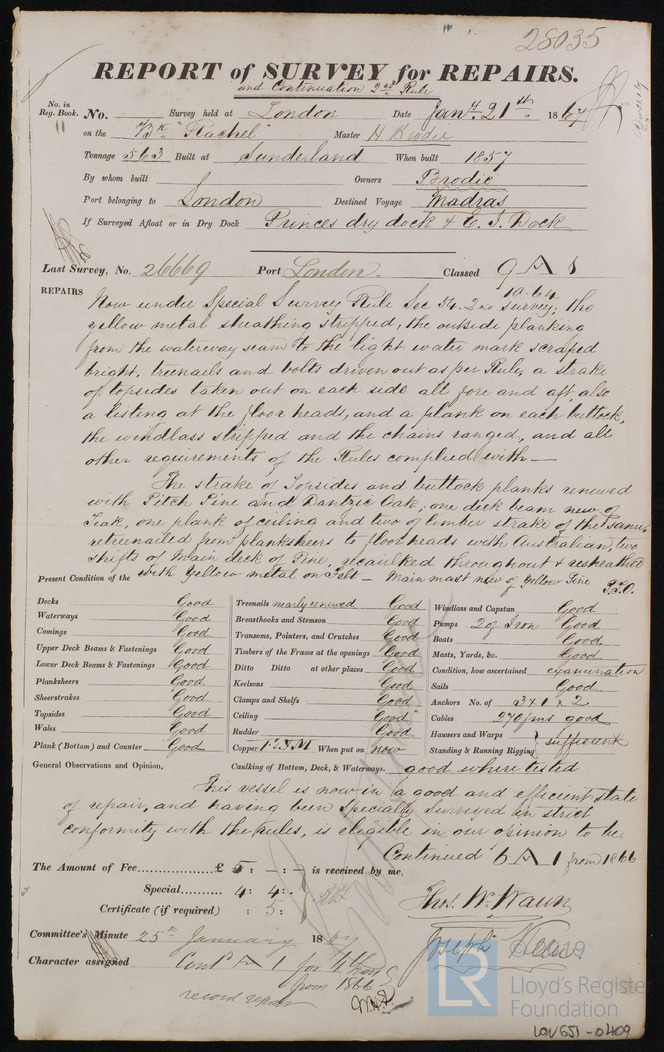 28035
REPORT of SURVEY for REPAIRS.
and Continuation 2nd Rule
No. in Reg. Book. No. Survey held at London Date Jany 21st 1867
11 on the Bk "Rachel" Master H Brodie
Tonnage 563 Built at Sunderland When built 1857
By whom built Owners Brodie
Port belonging to London Destined Voyage Madras
If Surveyed Afloat or in Dry Dock Princes dry dock & E. I. Dock
Last Survey, No. 26669 Port London. Classed 9 A 1
10.64
REPAIRS Now under Special Survey Rule Sec 54. 2nd survey; the
yellow metal sheathing stripped, the outside planking
from the waterway seam to the light water mark scraped
bright, treenails and bolts driven out as per Rule, a strake
of topsides taken out on each side all fore and aft, also
a listing at the floor heads, and a plank on each buttock,
the windlass stripped and the chains ranged, and all
other requirements of the Rules complied with—
The strake of Topsides and buttock planks renewed
with Pitch Pine and Dantzic Oak; one deck beam new of
Teak, one plank of ceiling and two of limber strake of the same,
retreenailed from plansheers to floorheads with Australian, two
shifts of main deck of Pine, recaulked throughout & resheathed
Present Condition of the with Yellow metal on Felt — Main mast new of Yellow Pine P.T.O.
Decks Good
Waterways Good
Comings Good
Upper Deck Beams & Fastenings Good
Lower Deck Beams & Fastenings Good
Planksheers Good
Sheerstrakes Good
Topsides Good
Wales Good
Plank (Bottom) and Counter Good
Treenails nearly renewed Good
Breasthooks and Stemson Good
Transoms, Pointers, and Crutches Good
Timbers of the Frame at the openings Good
Ditto Ditto at other places Good
Keelsons Good
Clamps and Shelfs Good
Ceiling Good
Rudder Good
Copper F.Y.M When put on now
Windlass and Capstan Good
Pumps 2 of Iron Good
Boats Good
Masts, Yards, &c. Good
Condition, how ascertained examination
Sails Good
Anchors No. of 3 x 1 x 2
Cables 270 fms good
Hawsers and Warps
Standing & Running Rigging } sufficient
General Observations and Opinion, Caulking of Bottom, Deck, & Waterways. good where tested
This vessel is now in a good and efficient state
of repair, and having been Specially Surveyed in strict
conformity with the rules, is eligible in our opinion to be
Continued 6 A 1 from 1866
The Amount of Fee £ 5 : - : - is received by me,
Special 4 : 4 :
Certificate (if required) : 5 :
Thos. W. Wawn
Committee's Minute 25th January 1867
Joseph
Character assigned Contd A 1 for
from 1866
record repairs
© 2019
LR Lloyd's Register
Foundation
LON651-0409